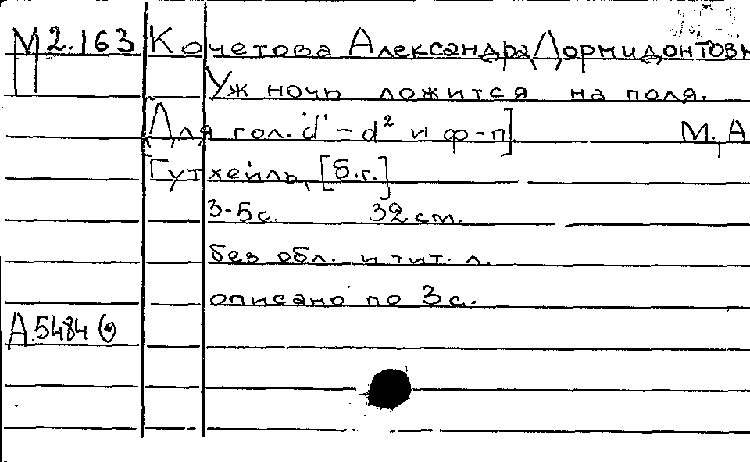 М2.163 Кочетова Александра Дормидонтовн
Уж ночь ложится на поля.
[Для гол. d¹ – d² и ф-п] М, А
Гутхейль, [б.г.]
3-5с. 32 cm.
без обл. и тит. л.
описано по 3с.
А5484